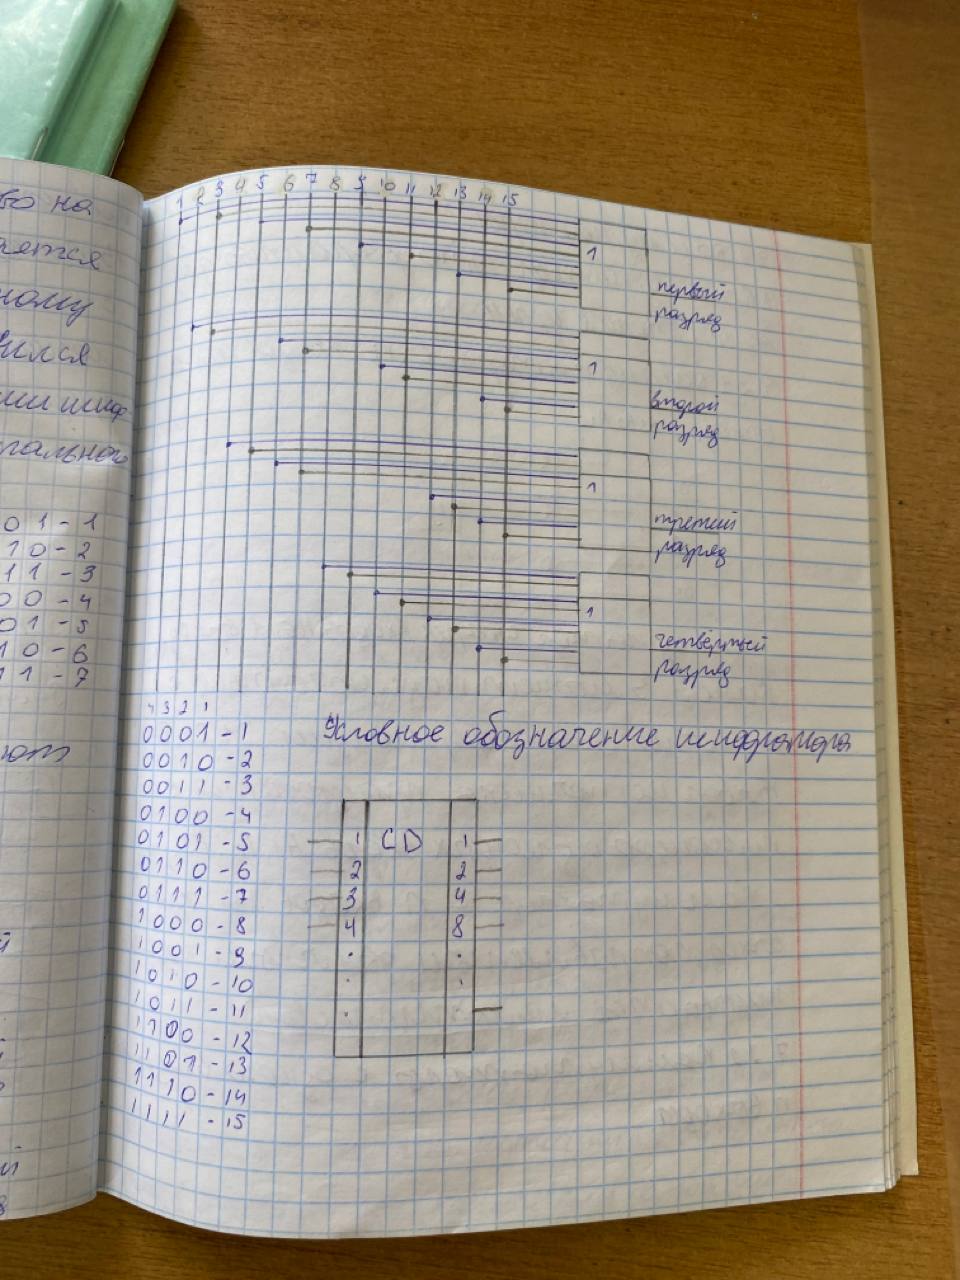 во на
ному
ился
01-1
10-2
11-3
00-4
01-5
10-6
11-7
1 2 3 4 5 6 7 8 9 10 11 12 13 14 15
1
первый
разряд
1
второй
разряд
1
третий
разряд
1
четвёртый
разряд
4 3 2 1
0001-1
0010-2
0011-3
0100-4
0101-5
0110-6
0111-7
1000-8
1001-9
1010-10
1011-11
1100-12
1101-13
1110-14
1111-15
Условное обозначение шифратора
1 CD 1
2 2
3 4
4 8